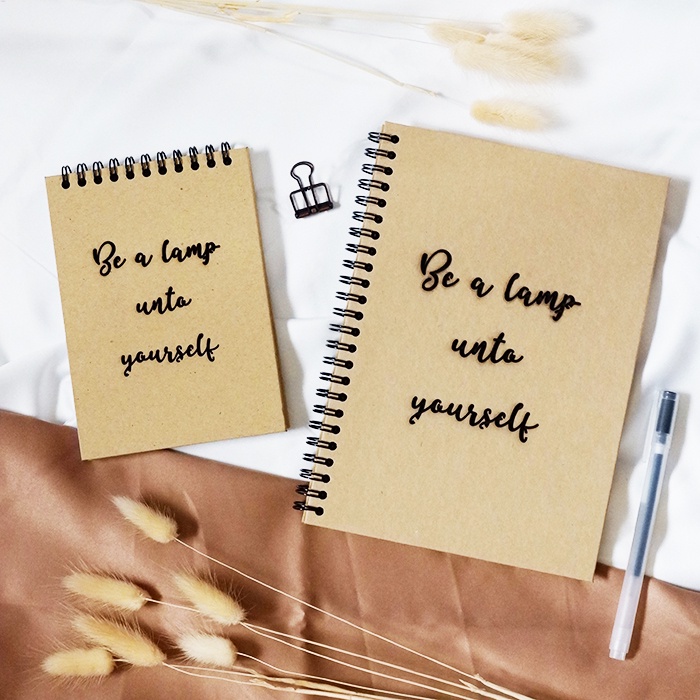 Be a lamp
unto
yourself
Be a lamp
unto
yourself